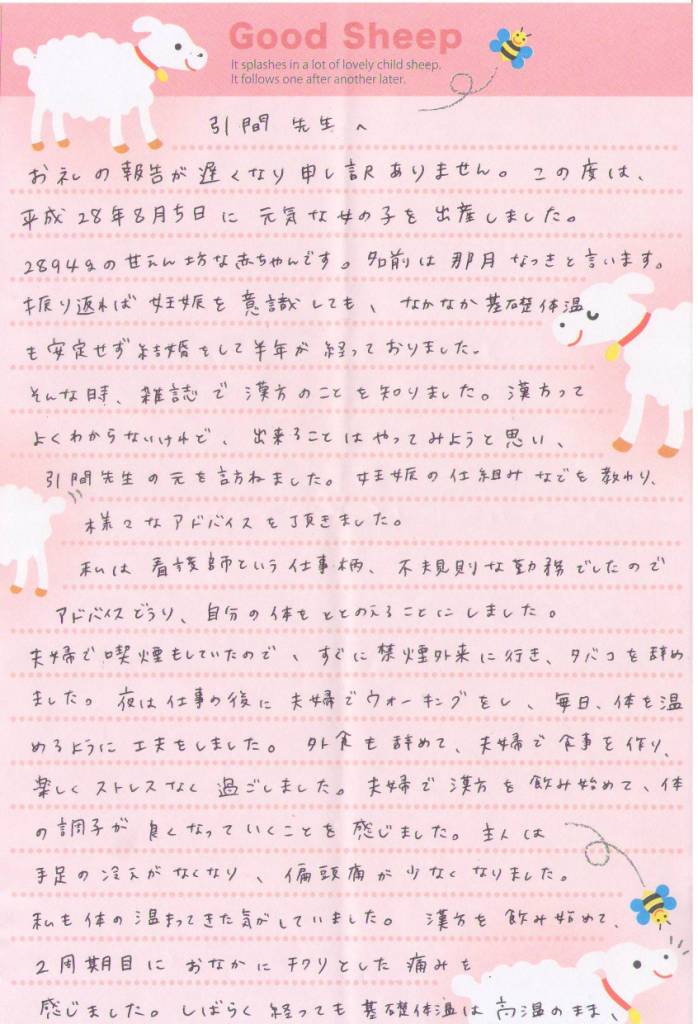 Good Sheep
It splashes in a lot of lovely child sheep.
It follows one after another later.
引間 先生へ
お礼の報告が遅くなり申し訳ありません。この度は、
平成28年8月5日に元気な女の子を出産しました。
2894gのせえん坊な赤ちゃんです。名前は那月なつきと言います。
振り返れば妊娠を意識しても、なかなか基礎体温
も安定せず結婚をして半年が経っておりました。
そんな時、雑誌で漢方のことを知りました。漢方って
よくわからないけれど、出来ることはやってみようと思い、
引間先生の元を訪ねました。妊娠の仕組みなどを教わり、
様々なアドバイスを頂きました。
私は看護師という仕事柄、不規則な勤務でしたので
アドバイスどうり、自分の体をととのえることにしました。
夫婦で喫煙もしていたので、すぐに禁煙外来に行き、タバコを辞め
ました。夜は仕事の後に夫婦でウォーキングをし、毎日、体を温
めるように工夫をしました。外食も辞めて、夫婦で食事を作り、
楽しくストレスなく過ごしました。夫婦で漢方を飲み始めて、体
の調子が良くなっていくことを感じました。主人は
手足の冷えがなくなり、偏頭痛が少なくなりました。
私も体の温まってきた気がしていました。漢方を飲み始めて、
2周期目におなかにチクリとした痛みを
感じました。しばらく経っても基礎体温は高温のまま、